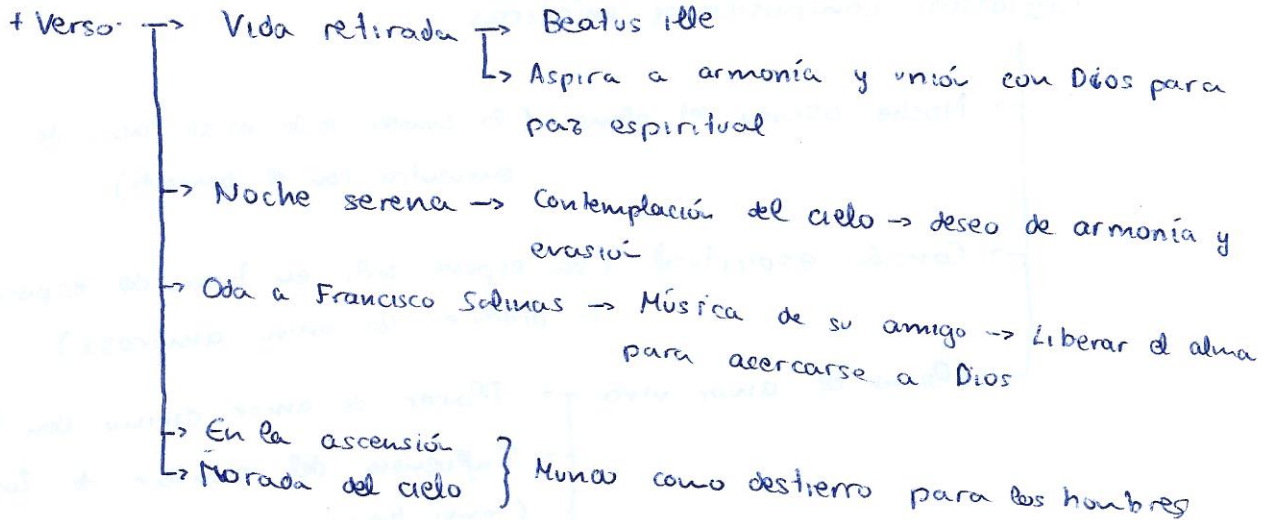 + Verso → Vida retirada → Beatus ille
→ Aspira a armonía y unión con Dios para
paz espiritual
→ Noche serena → Contemplación del cielo → deseo de armonía y
evasión
→ Oda a Francisco Salinas → Música de su amigo → Liberar el alma
para acercarse a Dios
→ En la ascensión
→ Morada del cielo } Mundo como destierro para los hombres